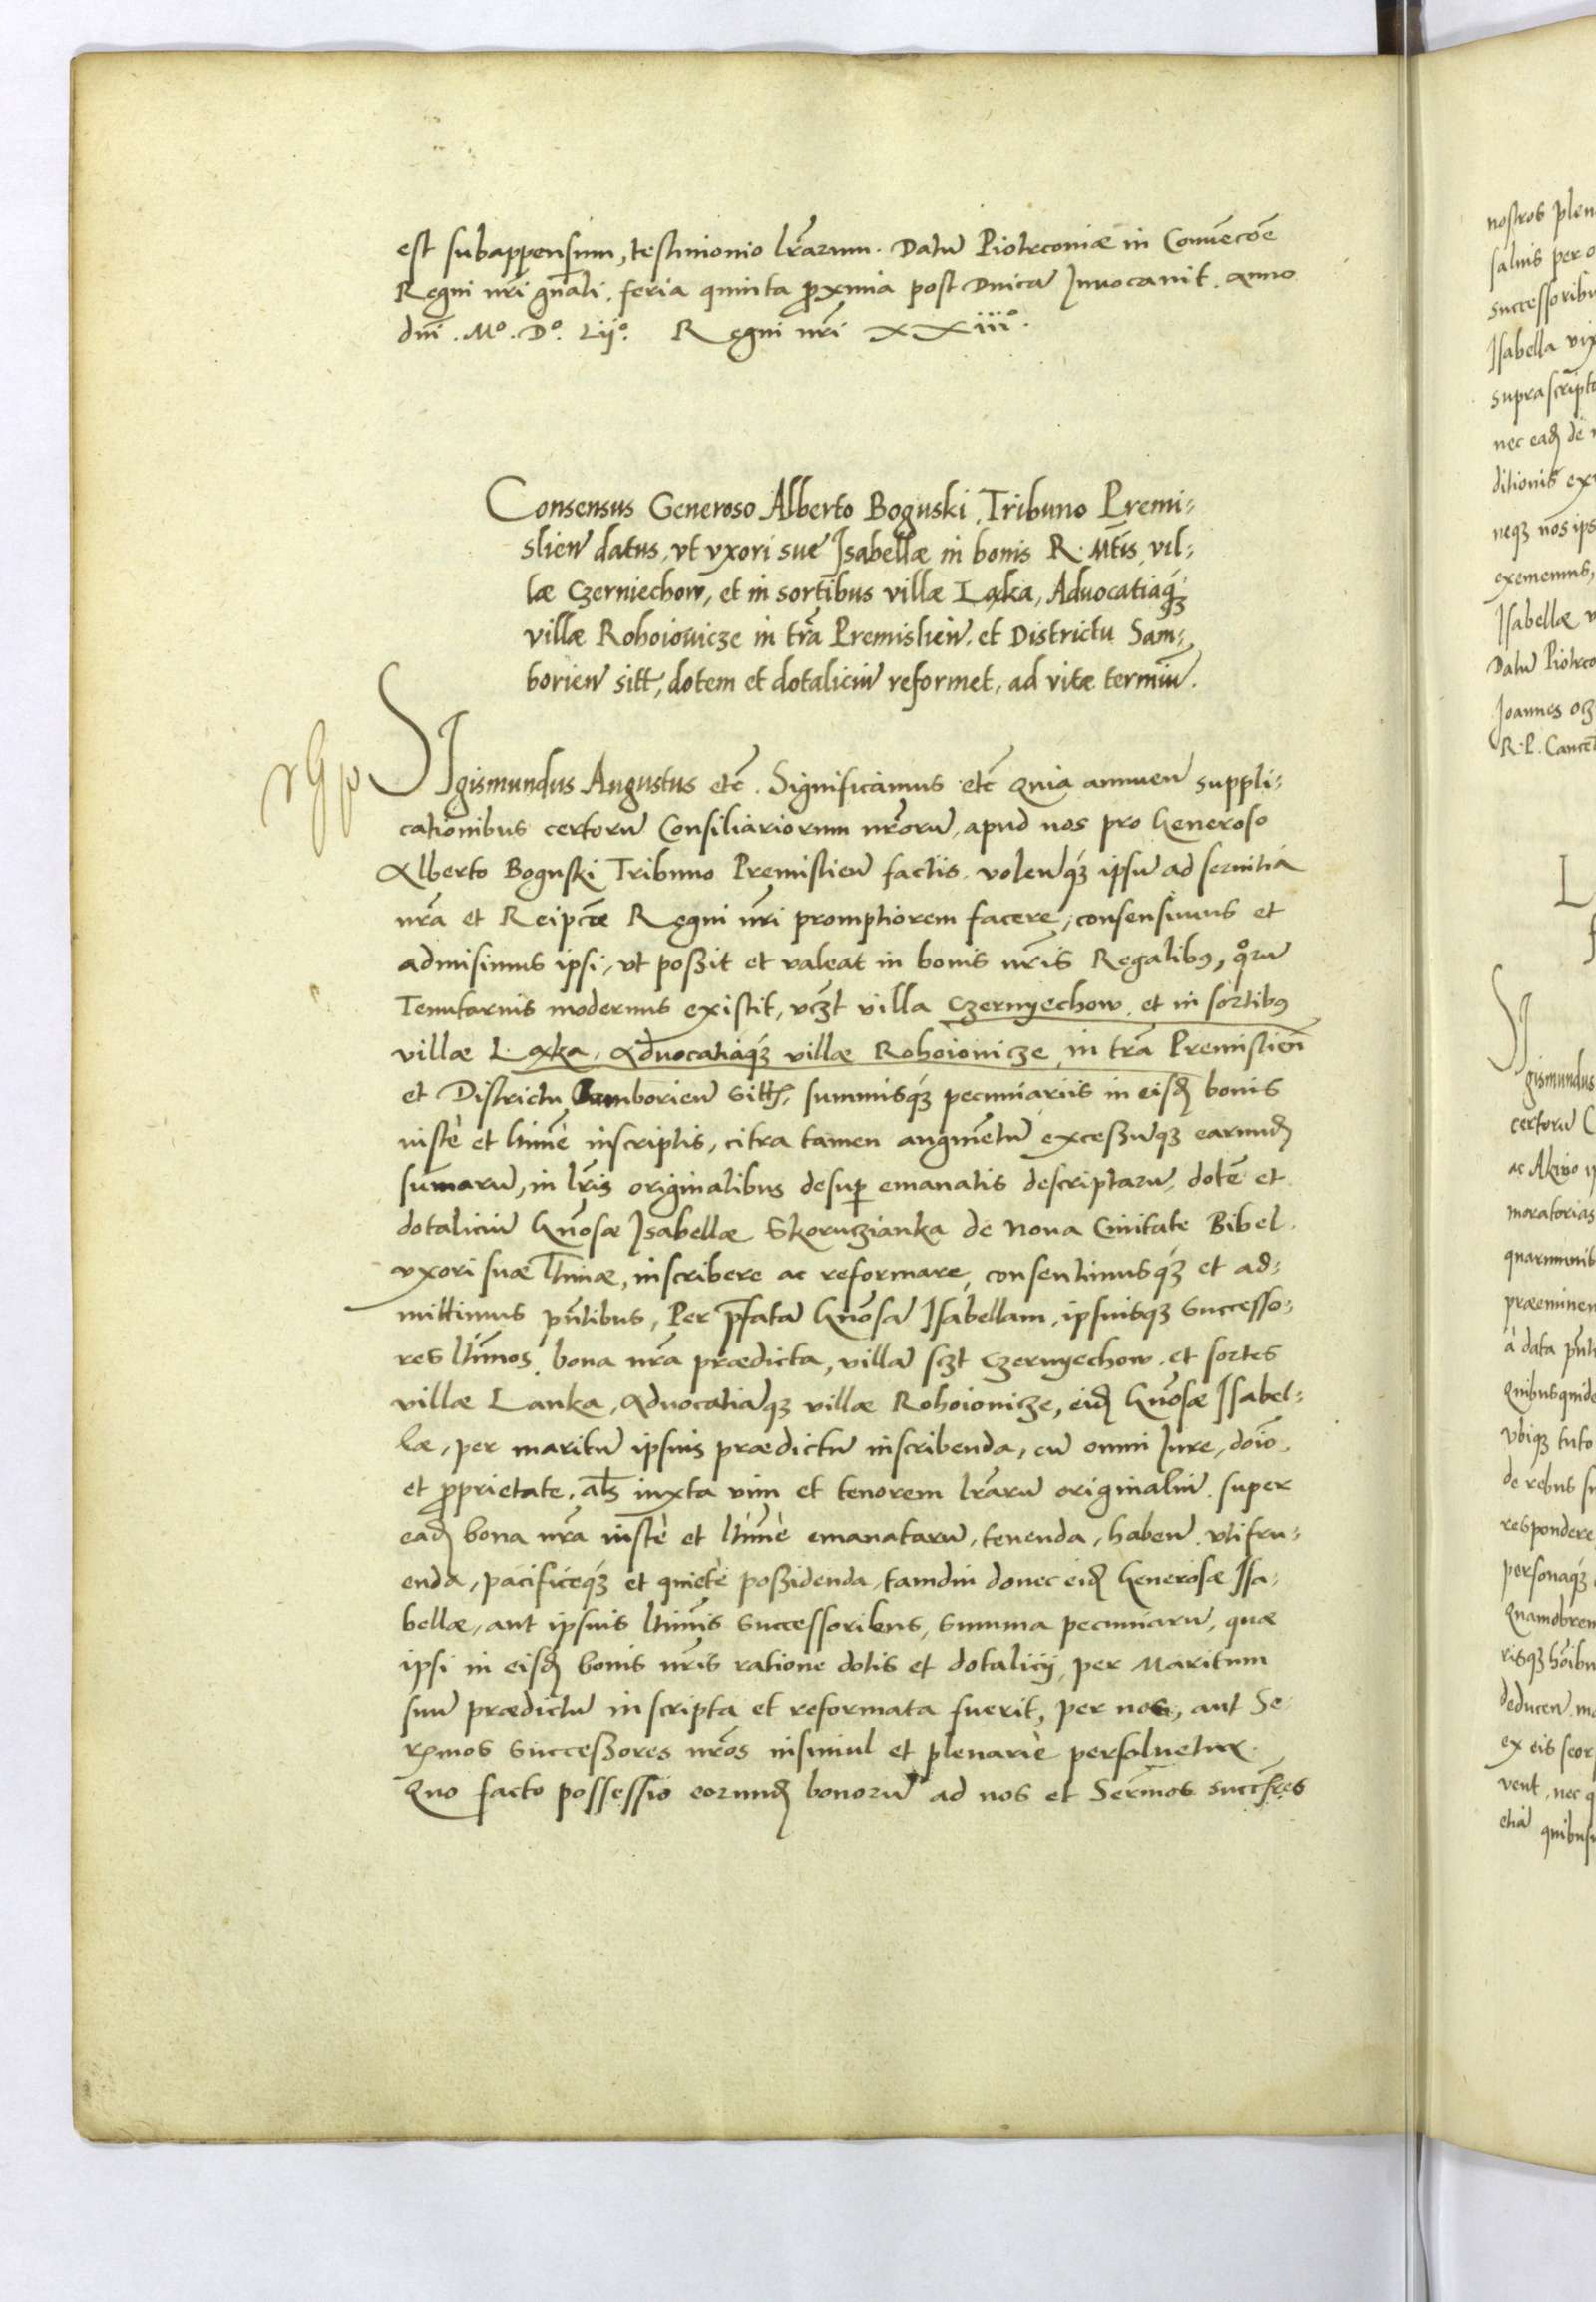 est subappensum, testimonio lrãrum. Datũ Piotrconiæ in Conuẽcõe
Regni nrĩ gñali, feria quinta ꝓxima post Dnicã Inuocauit. anno
dnĩ. Mº. Dº. Lijº. Regni nrĩ XXiijº.
Consensus Generoso Alberto Boguski, Tribuno Premi⸗
slien̄ datus, vt vxori sue Isabellæ in bonis R. Mtĩs, vil⸗
læ Czerniechow, et in sortibus villæ Ląka, Aduocatiaqꝫ
villæ Rohoiouicze in trã Premislien̄. et Districtu Sam⸗
borien̄ sitt, dotem et dotaliciũ reformet, ad vitæ terminũ.
SIgismundus Augustus etc̃. Significamus etc̃ Quia annuen̄ suppli⸗
cationibus certorũ Consiliariorum nrõrũ, apud nos pro Generoso
Alberto Boguski Tribuno Premislien̄ factis. volen̄qꝫ ipsũ ad seruitia
nrã et Reipcæ̃ Regni nrĩ promptiorem facere, consensimus et
admisimus ipsi, vt poßit et valeat in bonis nrĩs Regalibꝰ, qºrũ
Tenutarius modernus existit, vczt villa Czernyechow, et in sortibꝰ
villæ Ląka, Aduocatiaqꝫ villæ Rohoiouicze, in trã Premislien̄
et Districtu Samborien̄ sitt, summisqꝫ pecuniariis in eisđ bonis
iustè et ltimè̃ inscriptis, citra tamen augmẽtũ exceßũqꝫ earunđ
sum̃arũ, in lrĩs originalibus desuꝑ emanatis descriptarũ, dotẽ et
dotaliciũ Gnõsæ Isabellæ Skoruczianka de Noua Ciuitate Bibel.
vxori suæ ltimæ̃, inscribere ac reformare, consentimusqꝫ et ad⸗
mittimus pñtibus, Per p̃fatã Gnõsã Isabellam, ipsiusqꝫ successo⸗
res ltimõs, bona nrã prædicta, villã sczt Czernyechow, et sortes
villæ Lanka, Aduocatiãqꝫ villæ Rohoiouicze, eiđ Gnõsæ Isabel⸗
læ, per maritũ ipsius prædictũ inscribenda, cũ omni Iure, doĩo,
et ꝓprietate, als̃ iuxta vim et tenorem lrãrũ originaliũ. super
eađ bona nrã iustè et ltimè̃ emanatarũ, tenenda, haben̄. vtifru⸗
enda, pacificeqꝫ et quietè poßidenda, tamdiu donec eiđ Generosæ Isa⸗
bellæ, aut ipsius ltimĩs successoribus, summa pecuniarũ, quæ
ipsi in eisđ bonis nrĩs ratione dotis et dotalicij, per Maritum
suũ prædictũ inscripta et reformata fuerit, per nos, aut Se⸗
rꝫmos successores nrõs insimul et plenariè persoluetur.
Quo facto possessio eorunđ bonorũ ad nos et Serm̃os succs̃res